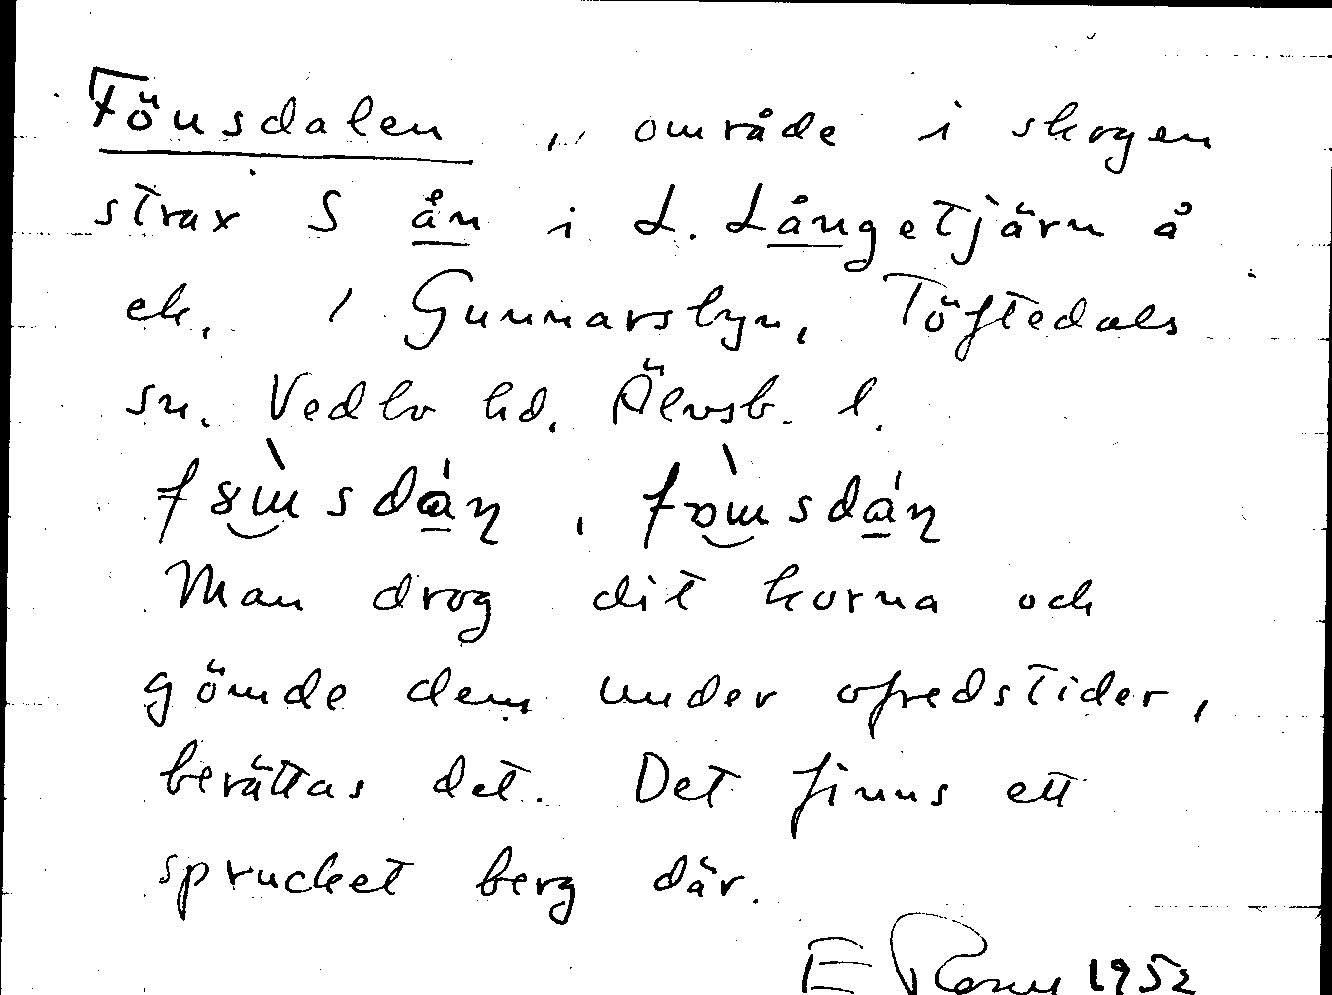 Fönsdalen, område i skogen
strax S ån i L. Långetjärn å
ek. 1 Gunnarsbyn, Töftedals
sn. Vedbo hd. Älvsb. l.
Man drog dit korna och
gömde dem under ofredstider,
berättas det. Det finns ett
sprucket berg där.
E 1952